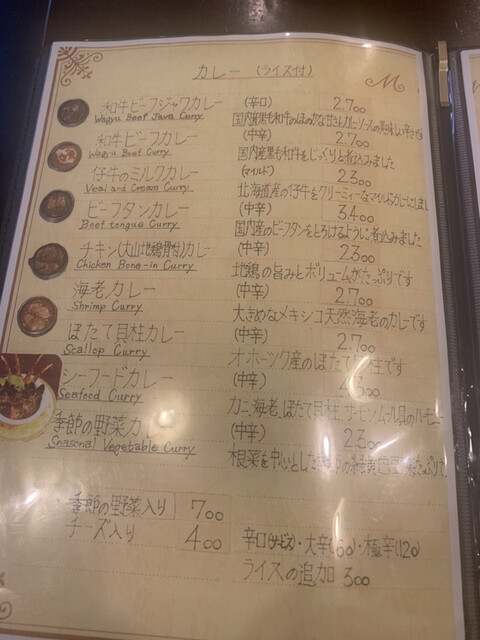 カレー (ライス付)
和牛ビーフジャワカレー (辛口) 2.700
Wagyu Beef Java Curry
和牛ビーフカレー (中辛) 2.700
Wagyu Beef Curry 国内産黒毛和牛をじっくりと煮込みました
仔牛のミルクカレー (マイルド) 2300
Veal and Cream Curry 北海道産の仔牛をクリーミーなマイルドカレーにしました
ビーフタンカレー (中辛) 3.400
Beef tongue Curry 国内産のビーフタンをとろけるように煮込みました
チキン(大山地鶏骨付)カレー (中辛) 2300
Chicken Bone-in Curry 地鶏の旨みとボリュームがたっぷりです
海老カレー (中辛) 2.700
Shrimp Curry 大きめなメキシコ天然海老のカレーです
ほたて貝柱カレー (中辛) 2.700
Scallop Curry オホーツク産のほたて貝柱です
シーフードカレー (中辛)
Seafood Curry カニ、海老、ほたて貝柱、
季節の野菜カレー (中辛) 2300
Seasonal Vegetable Curry 根菜を中心とした
季節の野菜入り 700
チーズ入り 400
辛口(サービス)・大辛(60)・極辛(120)
ライスの追加 300
M